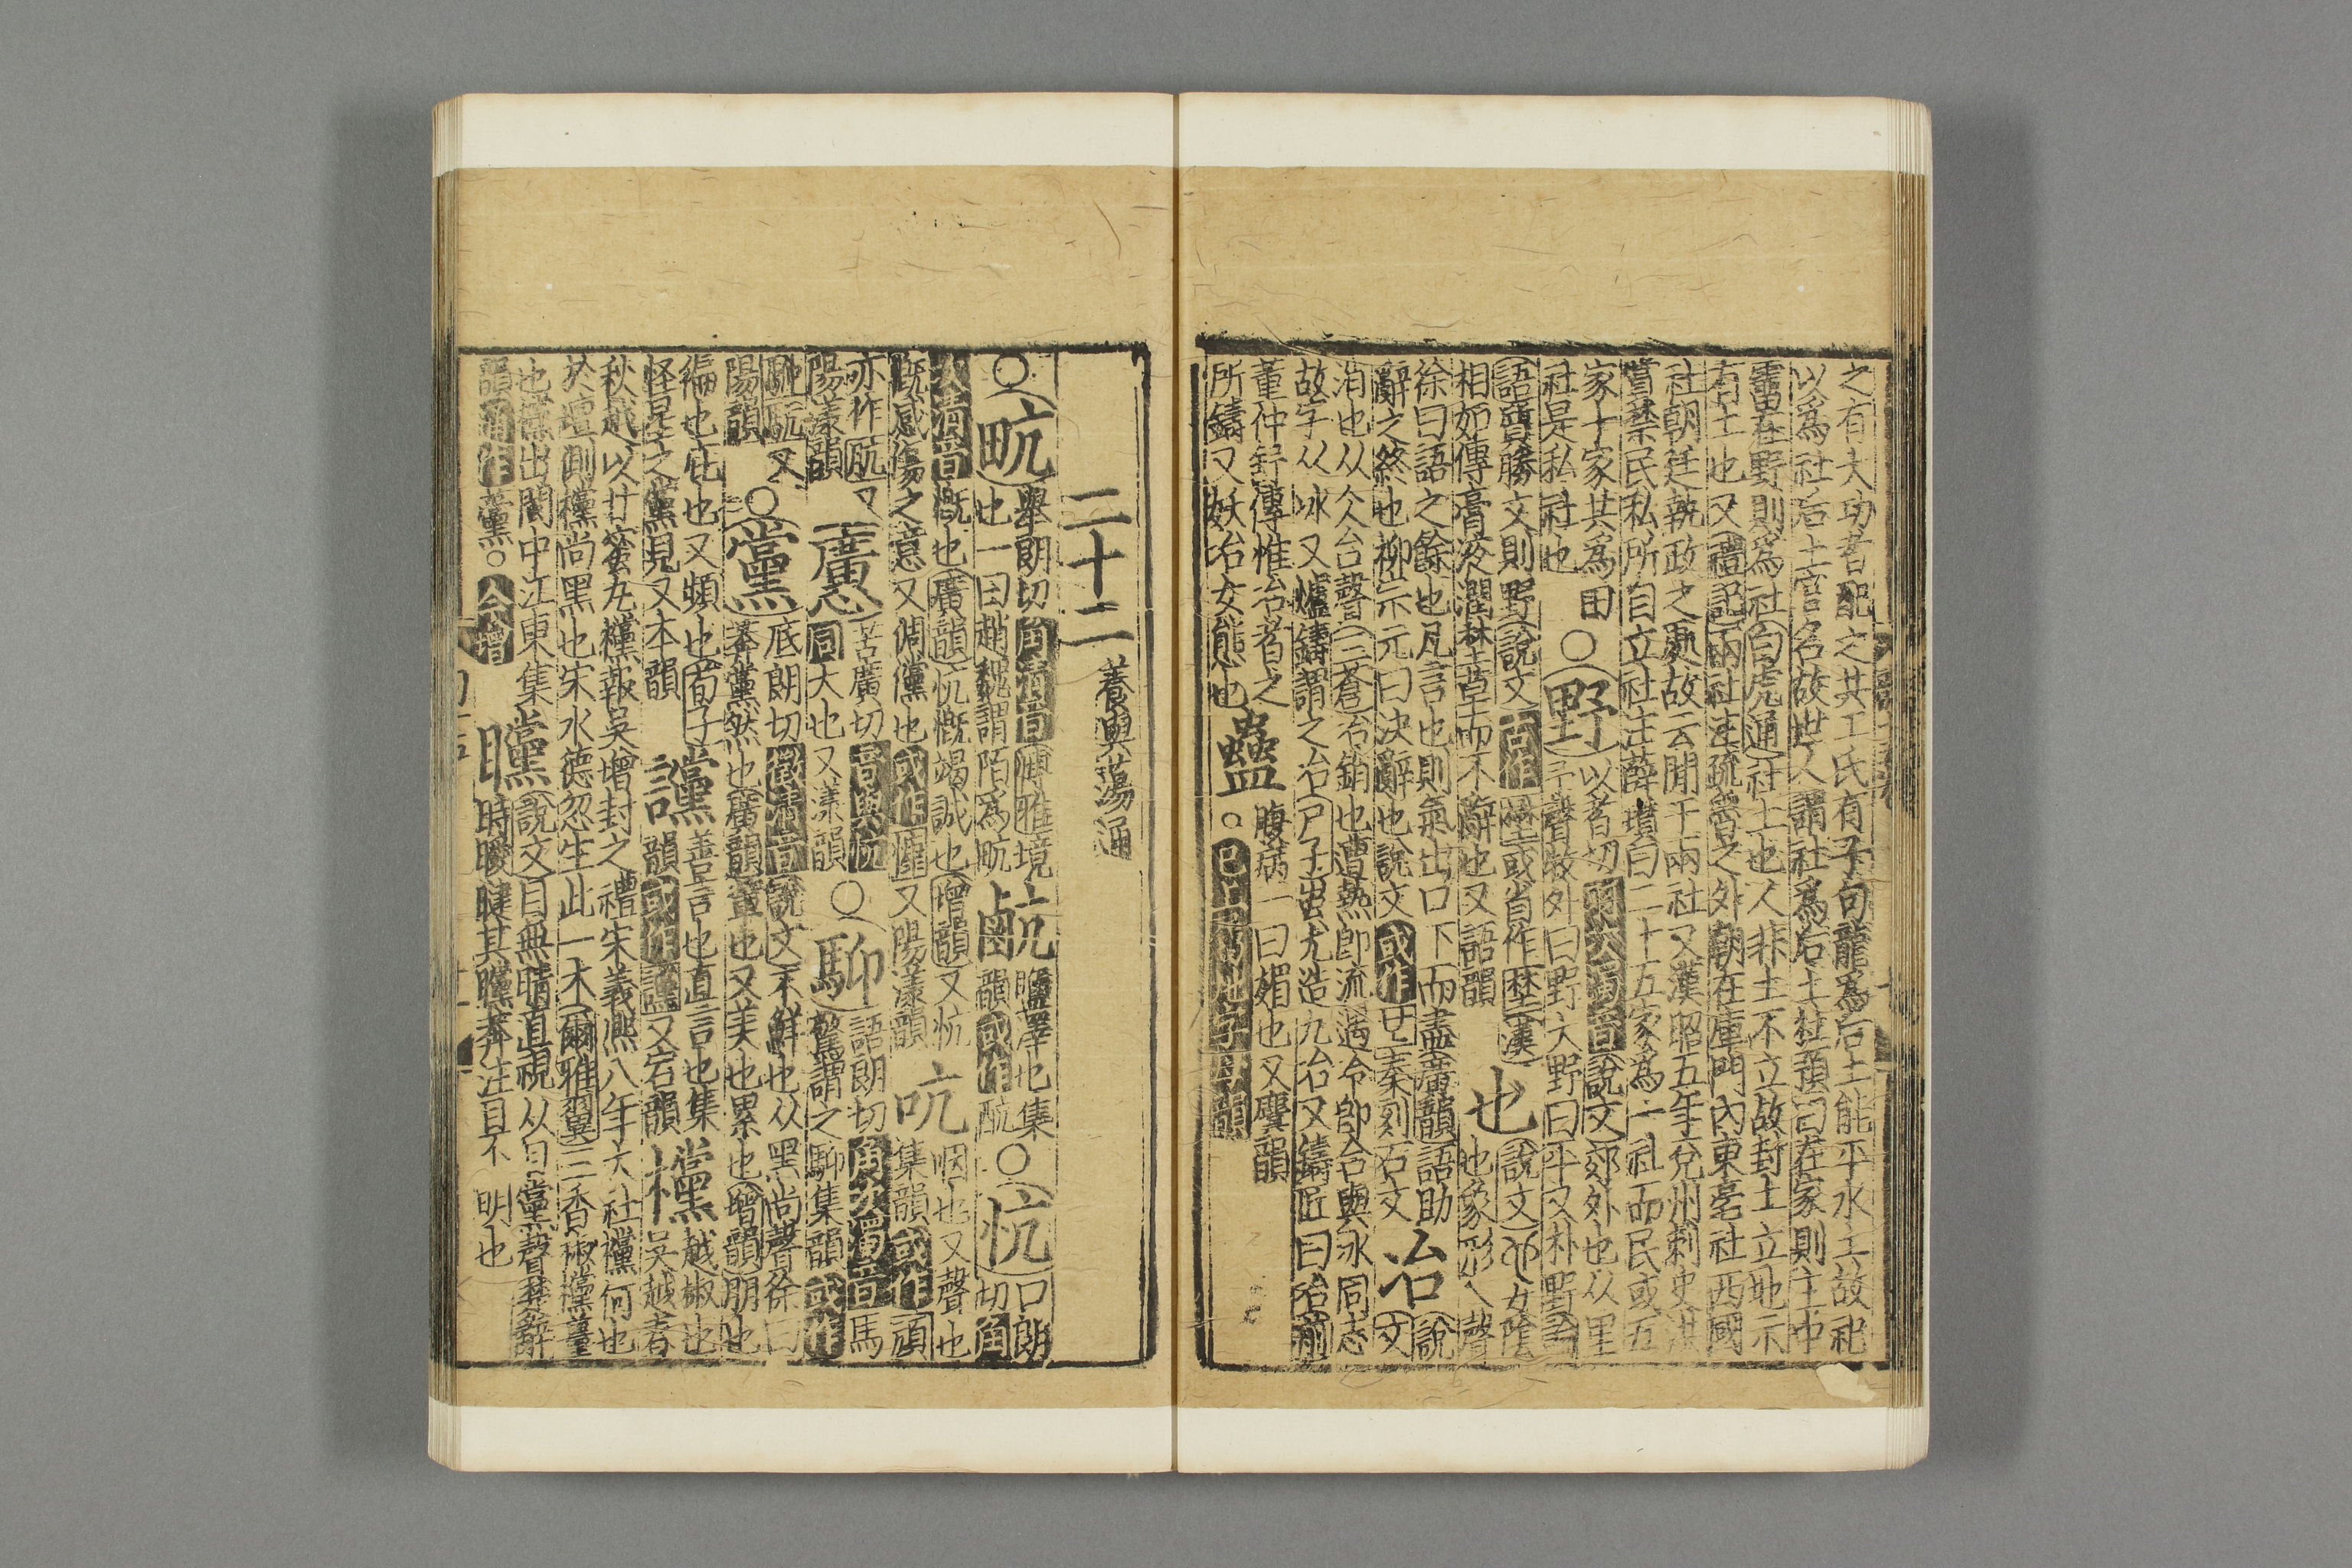 之有大功者配之共工氏有子句龍爲后土能平水土故祀
以爲社后土官名故世人謂社爲后土杜預曰在家則主中
霤在野則爲社白虎通社土也人非土不立故封土立地示
有土也又禮記兩社注疏魯之外朝在庫門內東亳社西國
社朝廷執政之處故云閒于兩社又漢昭五年兗州刺史浩
賞禁民私所自立社注薛瓉曰二十五家爲一社而民或五
家十家其爲田
社是私社也
○野
以者切羽次濁音說文郊外也从里
予聲牧外曰野大野曰平又朴野論
語質勝文則野說文古作壄或省作埜漢
相如傳膏液潤埜草而不辭也又語韻
也
說文女陰
也象形乁聲
徐曰語之餘也凡言也則氣出口下而盡廣韻語助
辭之終也柳宗元曰決辭也說文或作秦刻石文
冶
說
文
消也从仌台聲三蒼冶銷也遭熱即流遇冷即合與冰同志
故字从冰又爐鑄謂之冶尸子蚩尤造九冶又鑄匠曰冶前
董仲舒傳惟冶者之
所鑄又妖冶女態也
蠱
腹病一曰媚也又麌韻
○已上屬姐字母韻
二十二
養與蕩通
○㽘
舉朗切角清音博雅境
也一曰趙魏謂陌爲㽘
䴚
鹽澤也集
韻或作
○忼
口朗
切角
次清音慨也廣韻忼慨竭誠也增韻又忼
慨感傷之意又倜儻也或作慷又陽漾韻
吭
咽也又聲也
集韻或作頏
亦作肮又
陽漾韻
懬
苦廣切音與忼
同大也又漾韻
○駠
語朗切角次濁音馬
驚謂之駠集韻或作
又
陽韻
○黨
底朗切徵清音說文不鮮也从黑尚聲徐曰
莽黨然也廣韻輩也又美也累也增韻朋也
徧也比也又頻也荀子
怪星之黨見又本韻
讜
善言也直言也集
韻或作讜又宕韻
欓
越椒也
吳越春
秋越以甘蜜九欓報吳增封之禮宋義熙八年大社欓何也
於壇則欓尚黑也宋水德忽生此一木爾雅翼三香椒欓薑
也欓出閩中江東集
韻通作黨○今增
矘
說文目無睛直視从目黨聲楚辭
時曖曃其矘莽注目不明也